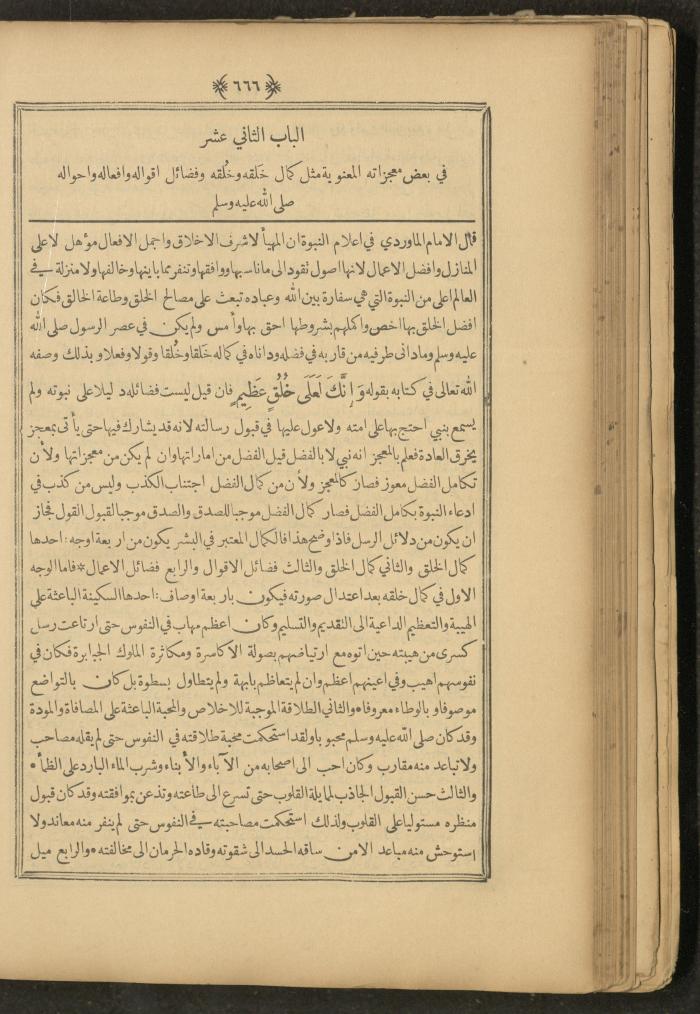 ﴿ ٦٦٦ ﴾
الباب الثاني عشر
في بعض معجزاته المعنوية مثل كمال خَلقه وخُلقه وفضائل اقواله وافعاله واحواله
صلى الله عليه وسلم
قال الامام الماوردي في اعلام النبوة ان المهيأ لاشرف الاخلاق واجمل الافعال مؤهل لاعلى
المنازل وافضل الاعمال لانها اصول نقود الى ما ناسبها ووافقها وتنفر مما باينها وخالفها ولا منزلة في
العالم اعلى من النبوة التي هي سفارة بين الله وعباده تبعث على مصالح الخلق وطاعة الخالق فكان
افضل الخلق بها اخص واكملهم بشروطها احق بها وأ مس ولم يكن في عصر الرسول صلى الله
عليه وسلم وما دانى طرفيه من قاربه في فضله وداناه في كماله خَلقا وخُلقا وقولا وفعلا وبذلك وصفه
الله تعالى في كتابه بقوله وَ إِنَّكَ لَعَلَى خُلُقٍ عَظِيمٍ فان قيل ليست فضائله د ليلا على نبوته ولم
يسمع بنبي احتج بها على امته ولا عول عليها في قبول رسالته لانه قد يشارك فيها حتى يأ تى بمعجز
يخرق العادة فعلم بالمعجز انه نبي لا بالفضل قيل الفضل من اماراتها وان لم يكن من معجزاتها ولأ ن
تكامل الفضل معوز فصار كالمعجز ولأ ن من كمال الفضل اجتناب الكذب وليس من كذب في
ادعاء النبوة بكامل الفضل فصار كمال الفضل موجبا للصدق والصدق موجبا لقبول القول فجاز
ان يكون من دلائل الرسل فاذا وضح هذا فالكمال المعتبر في البشر يكون من ار بعة اوجه : احدها
كمال الخلق والثاني كمال الخلق والثالث فضائل الاقوال والرابع فضائل الاعمال * فاما الوجه
الاول في كمال خلقه بعد اعتدال صورته فيكون بار بعة اوصاف : احدها السكينة الباعثة على
الهيبة والتعظيم الداعية الى التقديم والتسليم وكان اعظم مهاب في النفوس حتى ارتاعت رسل
كسرى من هيبته حين اتوه مع ارتياضهم بصولة الاكاسرة ومكاثرة الملوك الجبابرة فكان في
نفوسهم اهيب وفي اعينهم اعظم وان لم يتعاظم بابهة ولم يتطاول بسطوة بل كان بالتواضع
موصوفا و بالوطاء معروفا • والثاني الطلاقة الموجبة للاخلاص والمحبة الباعثة على المصافاة والمودة
وقد كان صلى الله عليه وسلم محبو با ولقد استحكمت محبة طلاقته في النفوس حتى لم يقله مصاحب
ولا تباعد منه مقارب وكان احب الى اصحابه من الآ باء والأ بناء وشرب الماء البارد على الظمأ •
والثالث حسن القبول الجاذب لممايلة القلوب حتى تسرع الى طاعته وتذعن بموافقته وقد كان قبول
منظره مستوليا على القلوب ولذلك استحكمت مصاحبته في النفوس حتى لم ينفر منه معاند ولا
استوحش منه مباعد الا من ساقه الحسد الى شقوته وقاده الحرمان الى مخالفته • والرابع ميل